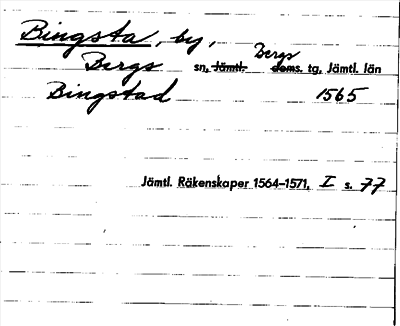 Bingsta, by,
Bergs sn, Jämtl. Bergs doms. tg, Jämtl. län
Bingstad 1565
Jämtl. Räkenskaper 1564–1571, I s. 77